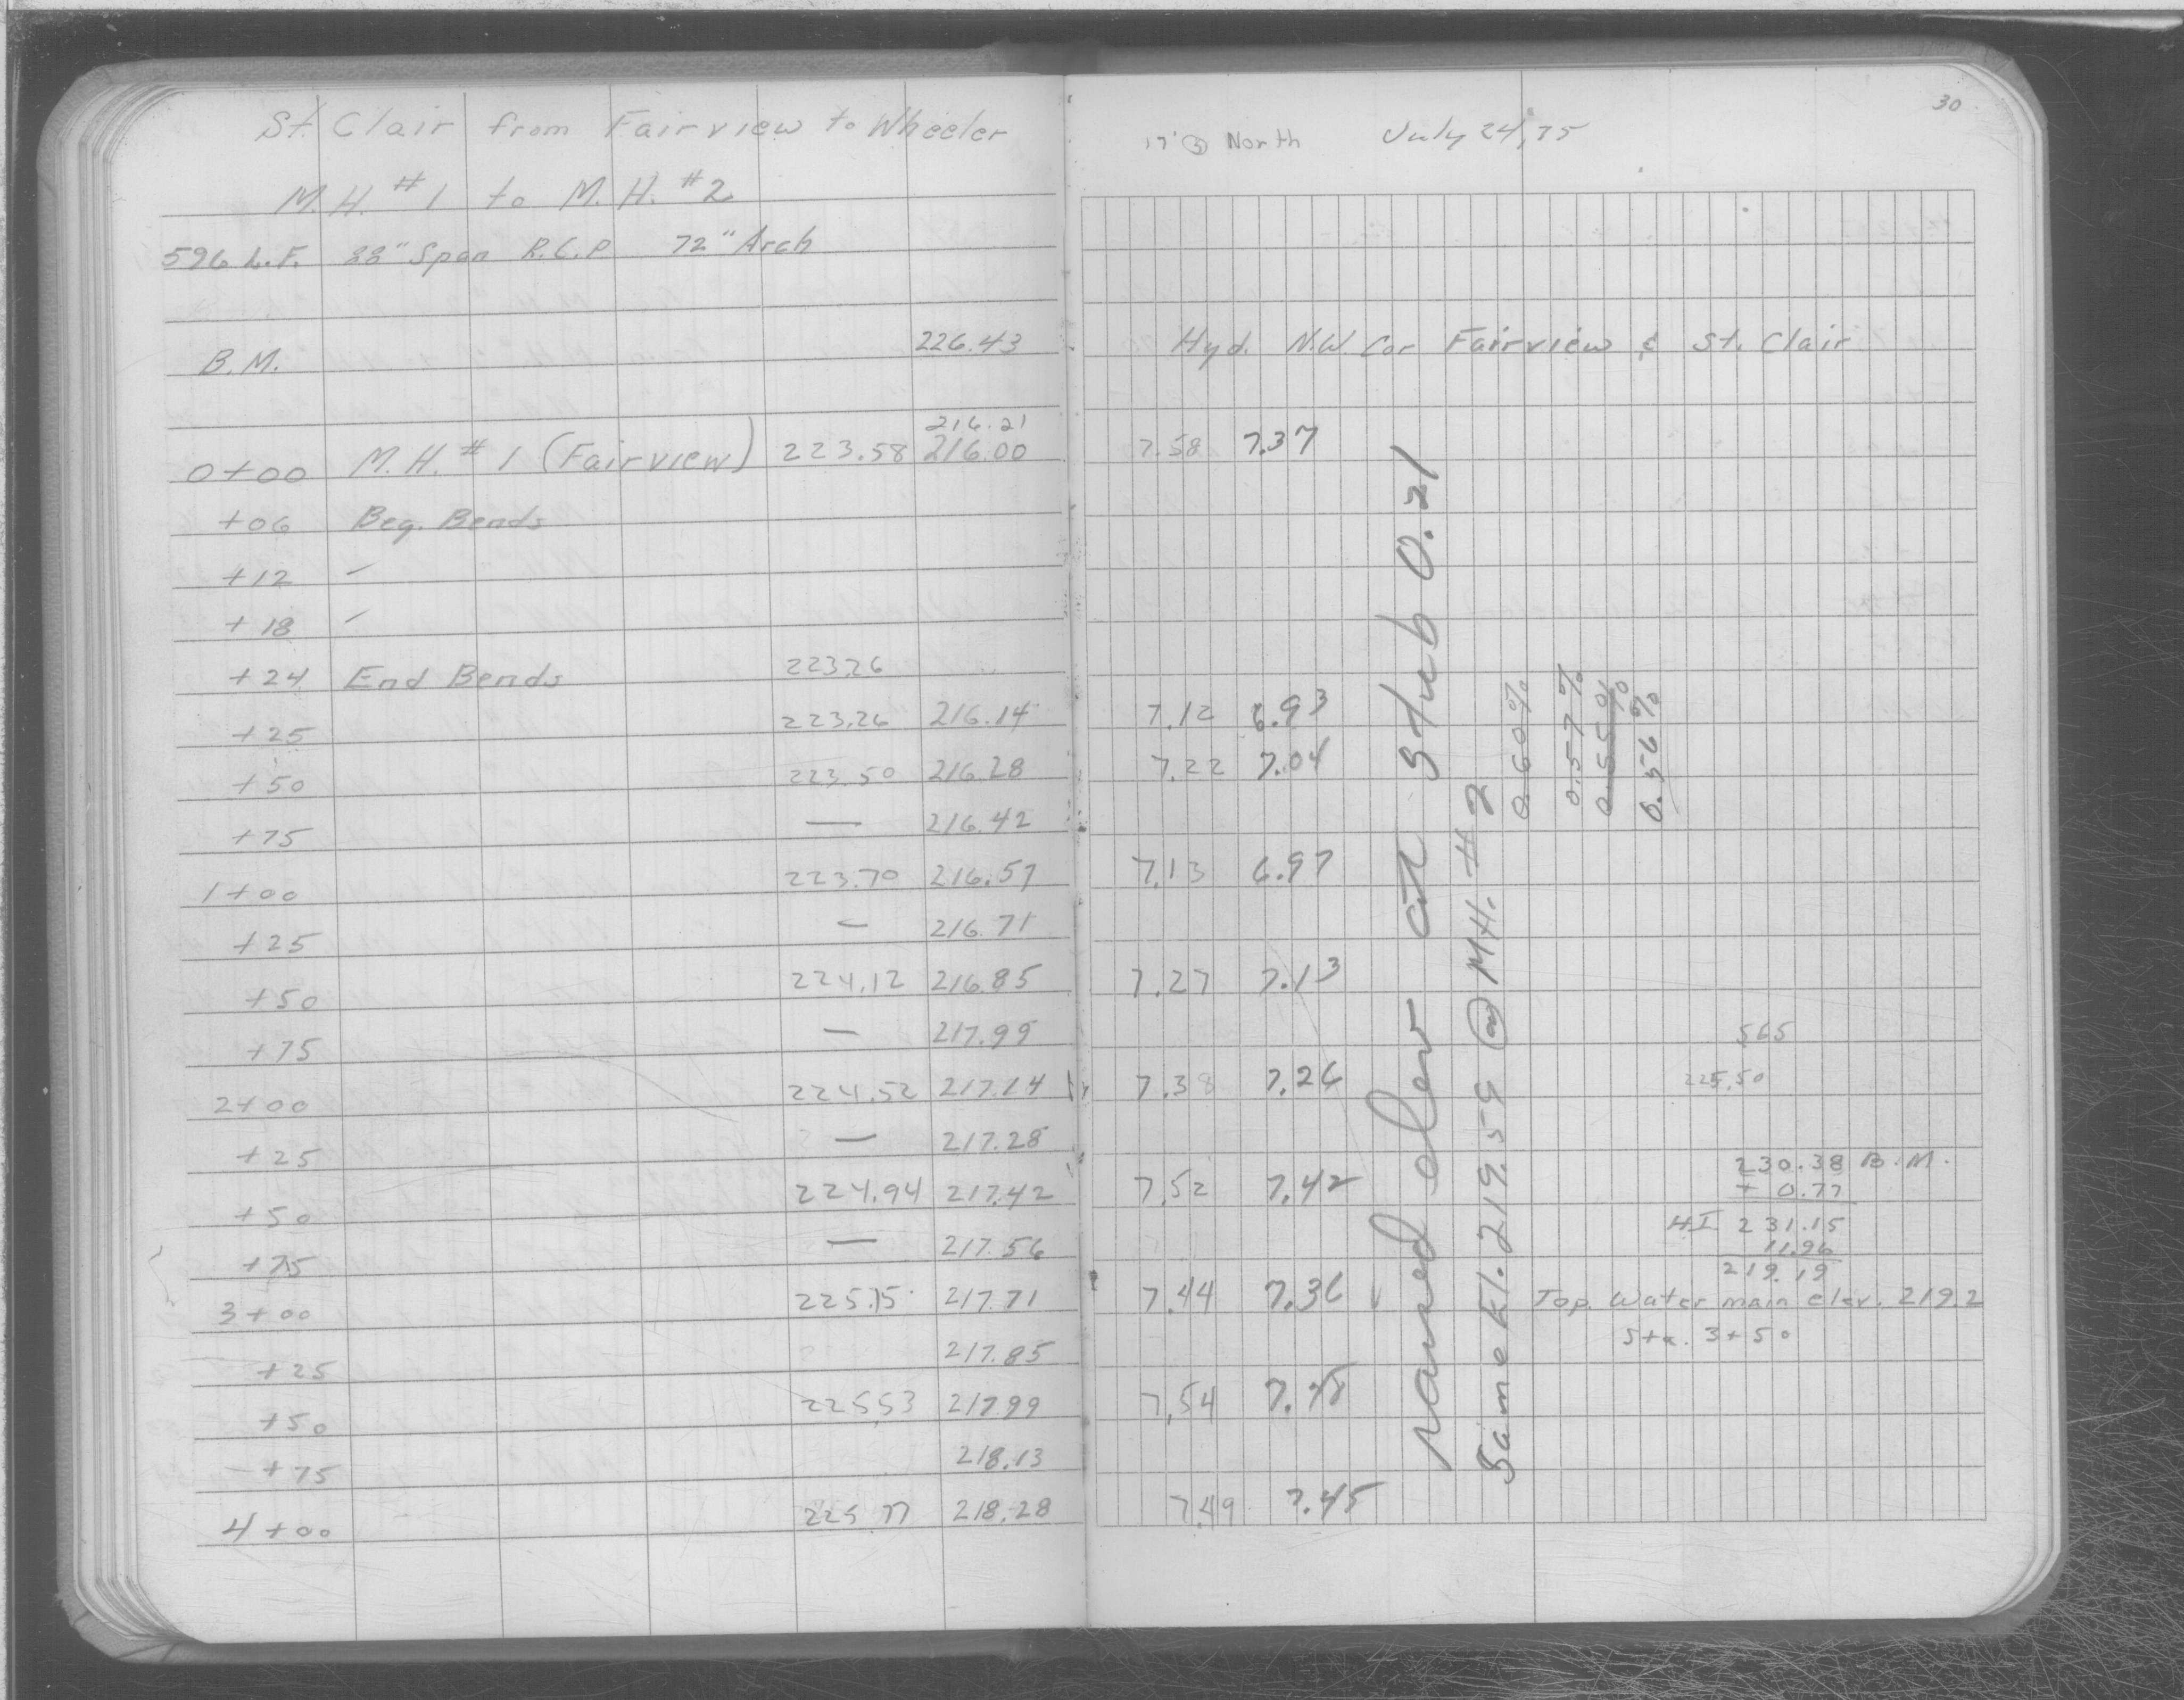 St. Clair from Fairview to Wheeler
M.H. #1 to M.H. #2
596 L.F. 88" Span R.C.P 72" Arch
B.M. 226.43
216.21
0+00 M.H. #1 (Fairview) 223.58 216.00
+06 Beg. Bends
+12 -
+18 -
+24 End Bends 223.26
+25 223.26 216.14
+50 223.50 216.28
+75 — 216.42
1+00 223.70 216.57
+25 — 216.71
+50 224.12 216.85
+75 — 217.99
2+00 224.52 217.14
+25 — 217.28
+50 224.94 217.42
+75 — 217.56
3+00 225.15 217.71
+25 217.85
+50 225.53 217.99
+75 218.13
4+00 225.77 218.28
30
North July 24, 75
Hyd. N.W. Cor Fairview & St. Clair
7.58 7.37
7.12 6.93
7.22 7.04
7.13 6.97
7.27 7.13
7.38 7.26
7.52 7.42
7.44 7.36
7.54
7.49 7.45
raised elev at stub 0.21
Same El. 219.59 @ MH. #2
0.60%
0.57%
0.55%
0.56%
565
225.50
230.38 B.M.
+ 0.77
HI 231.15
11.96
219.19
Top. Water main elev. 219.2
Sta. 3+50